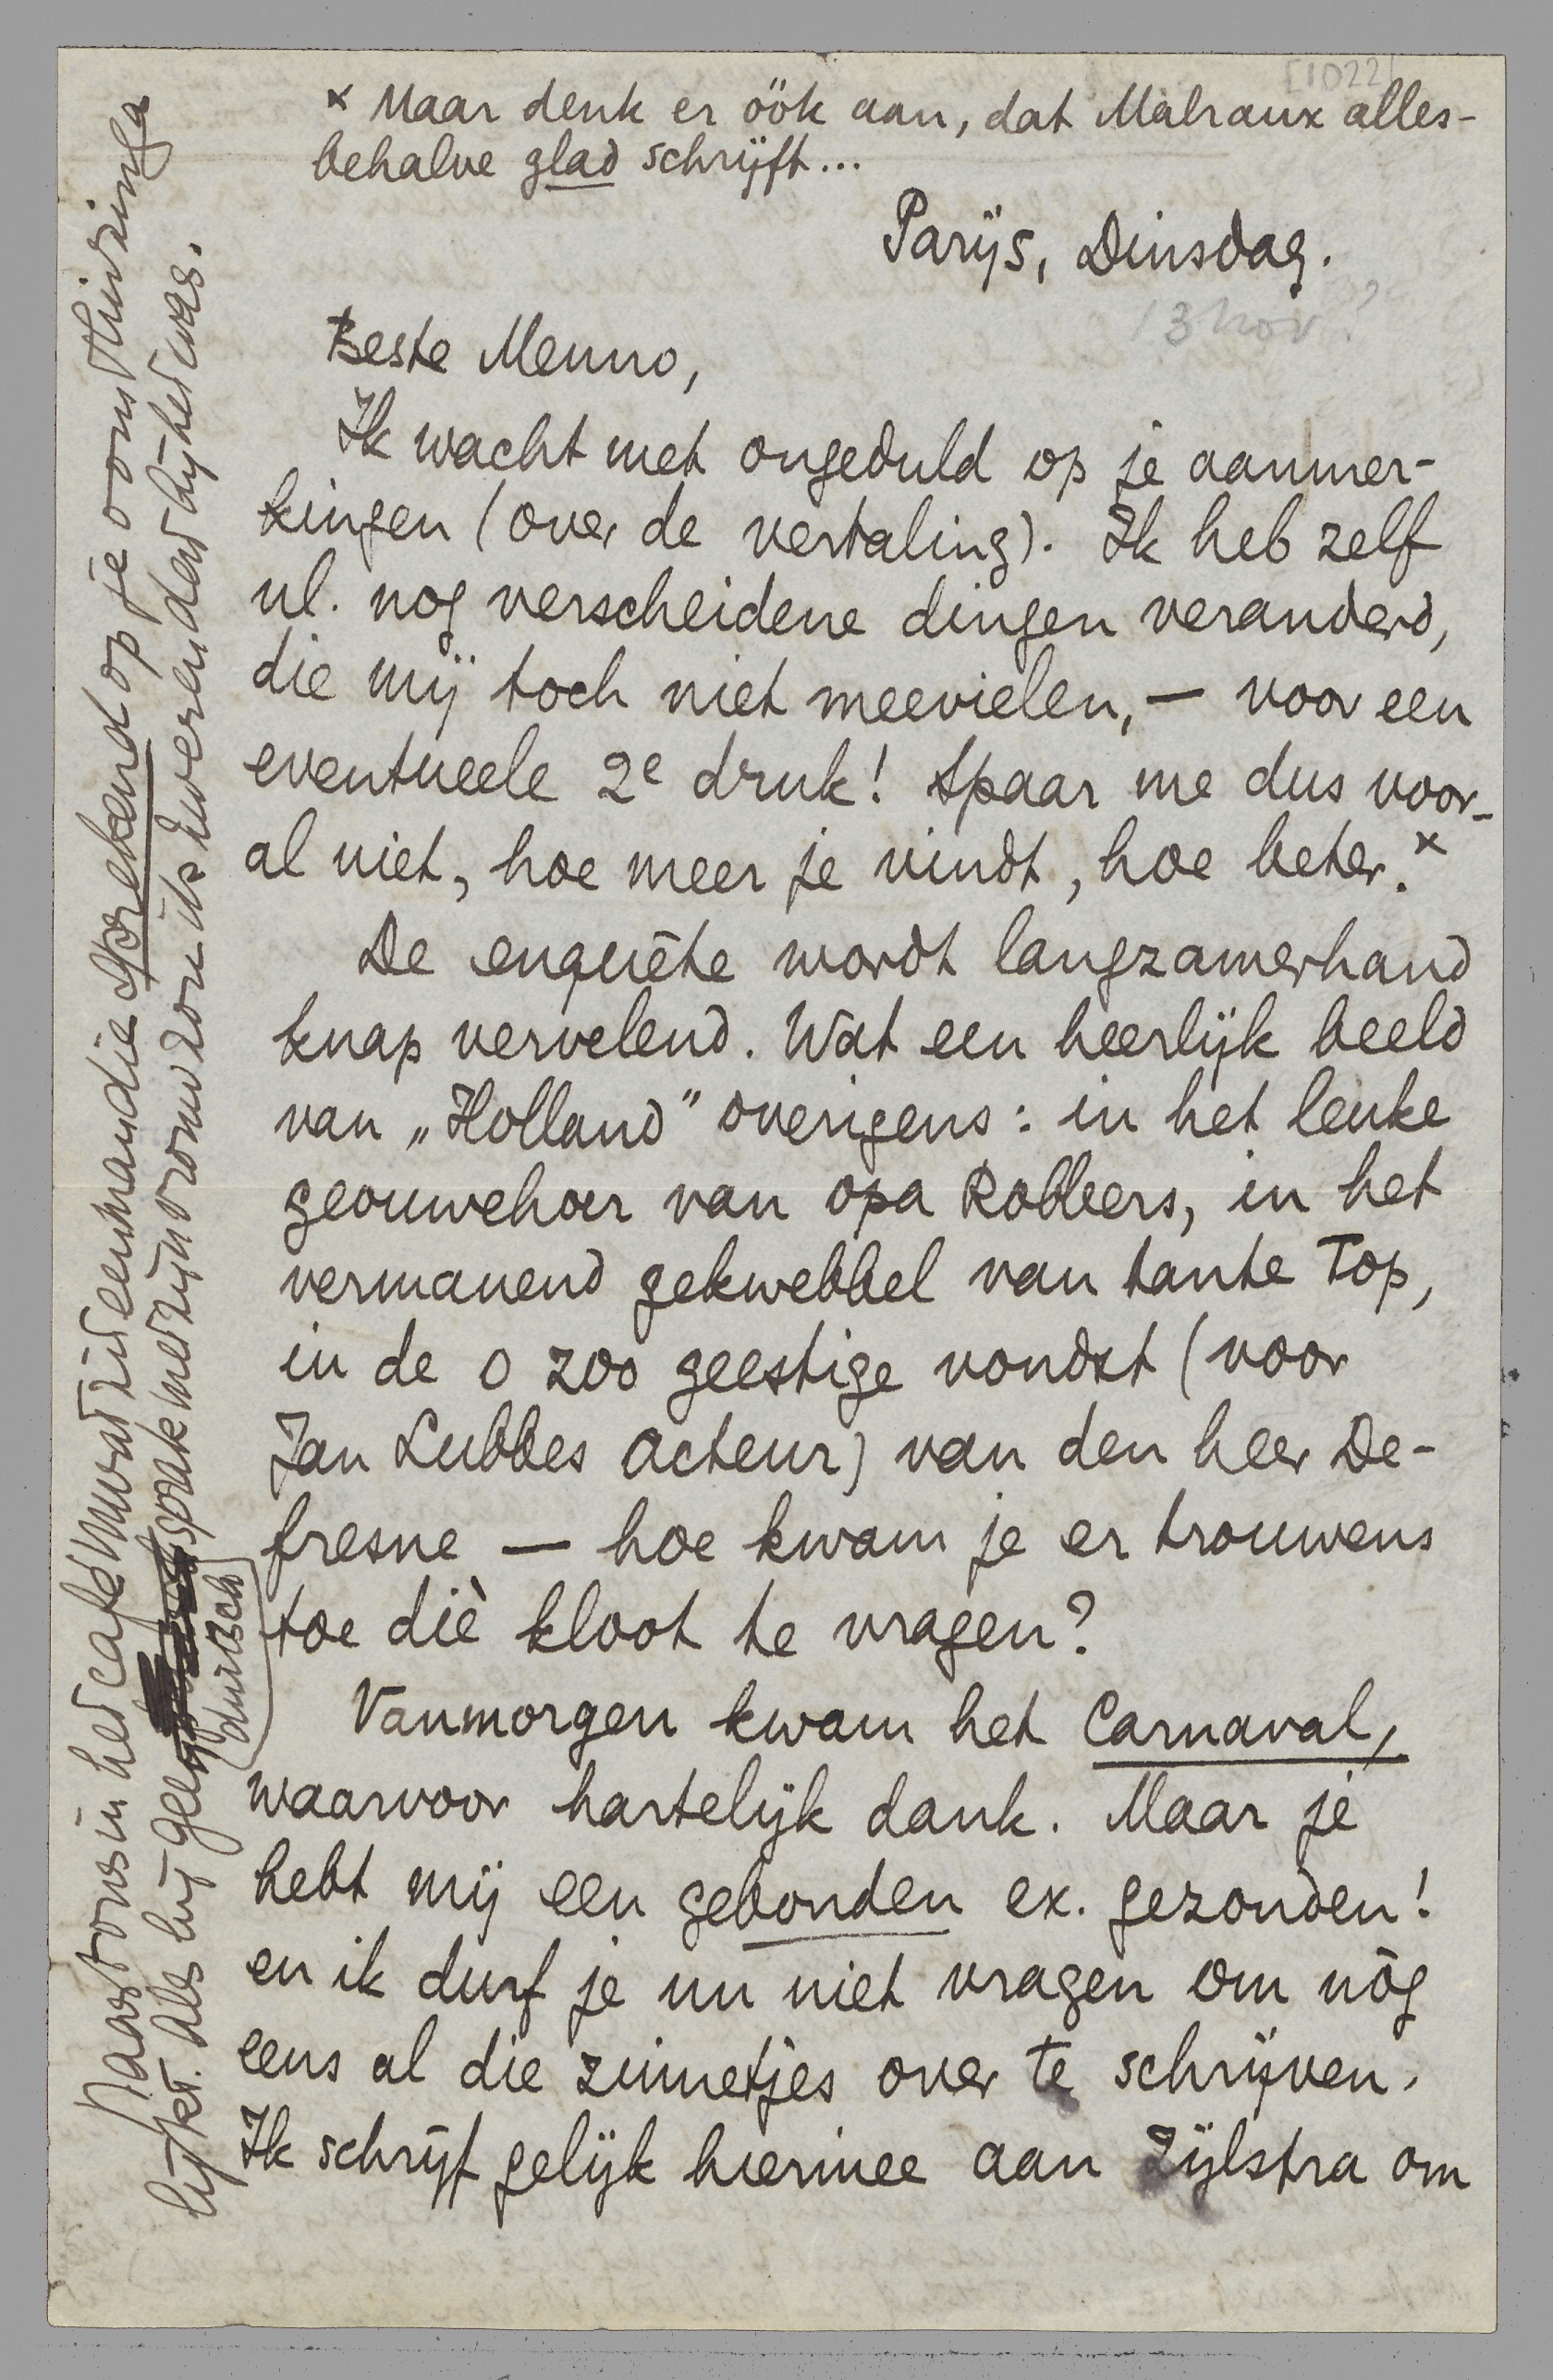 [1022]
x Maar denk er óók aan, dat Malraux alles-
behalve glad schrijft...
Parijs, Dinsdag.
13 nov.?
Beste Menno,
Ik wacht met ongeduld op je aanmer-
kingen (over de vertaling). Ik heb zelf
nl. nog verscheidene dingen veranderd,
die mij toch niet meevielen, — voor een
eventueele 2e druk! Spaar me dus voor-
al niet, hoe meer je vindt, hoe beter. x
De enquête wordt langzamerhand
knap vervelend. Wat een heerlijk beeld
van „Holland” overigens: in het leuke
geouwehoer van opa Robbers, in het
vermanend gekwebbel van tante Top,
in de o zoo geestige vondst (voor
Jan Lubbes acteur) van den heer De-
fresne — hoe kwam je er trouwens
toe diè kloot te vragen?
Vanmorgen kwam het Carnaval,
waarvoor hartelijk dank. Maar je
hebt mij een gebonden ex. gezonden!
en ik durf je nu niet vragen om nòg
eens al die zinnetjes over te schrijven.
Ik schrijf gelijk hiermee aan Zijlstra om
Naast ons in het café Murat zit een man die sprekend op je oom Huizinga
lijkt. Als hij geen duitsch sprak met zijn vrouw zou ik zweren dat hij het was.